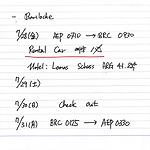 - Bariloche
7/28(金) AEP 0710 → BRC 0930
Rental Car
Hotel: Lomas Schoss ARG 41.24$
7/29(土)
7/30(日) check out
7/31(月) BRC 0125 → AEP 0330